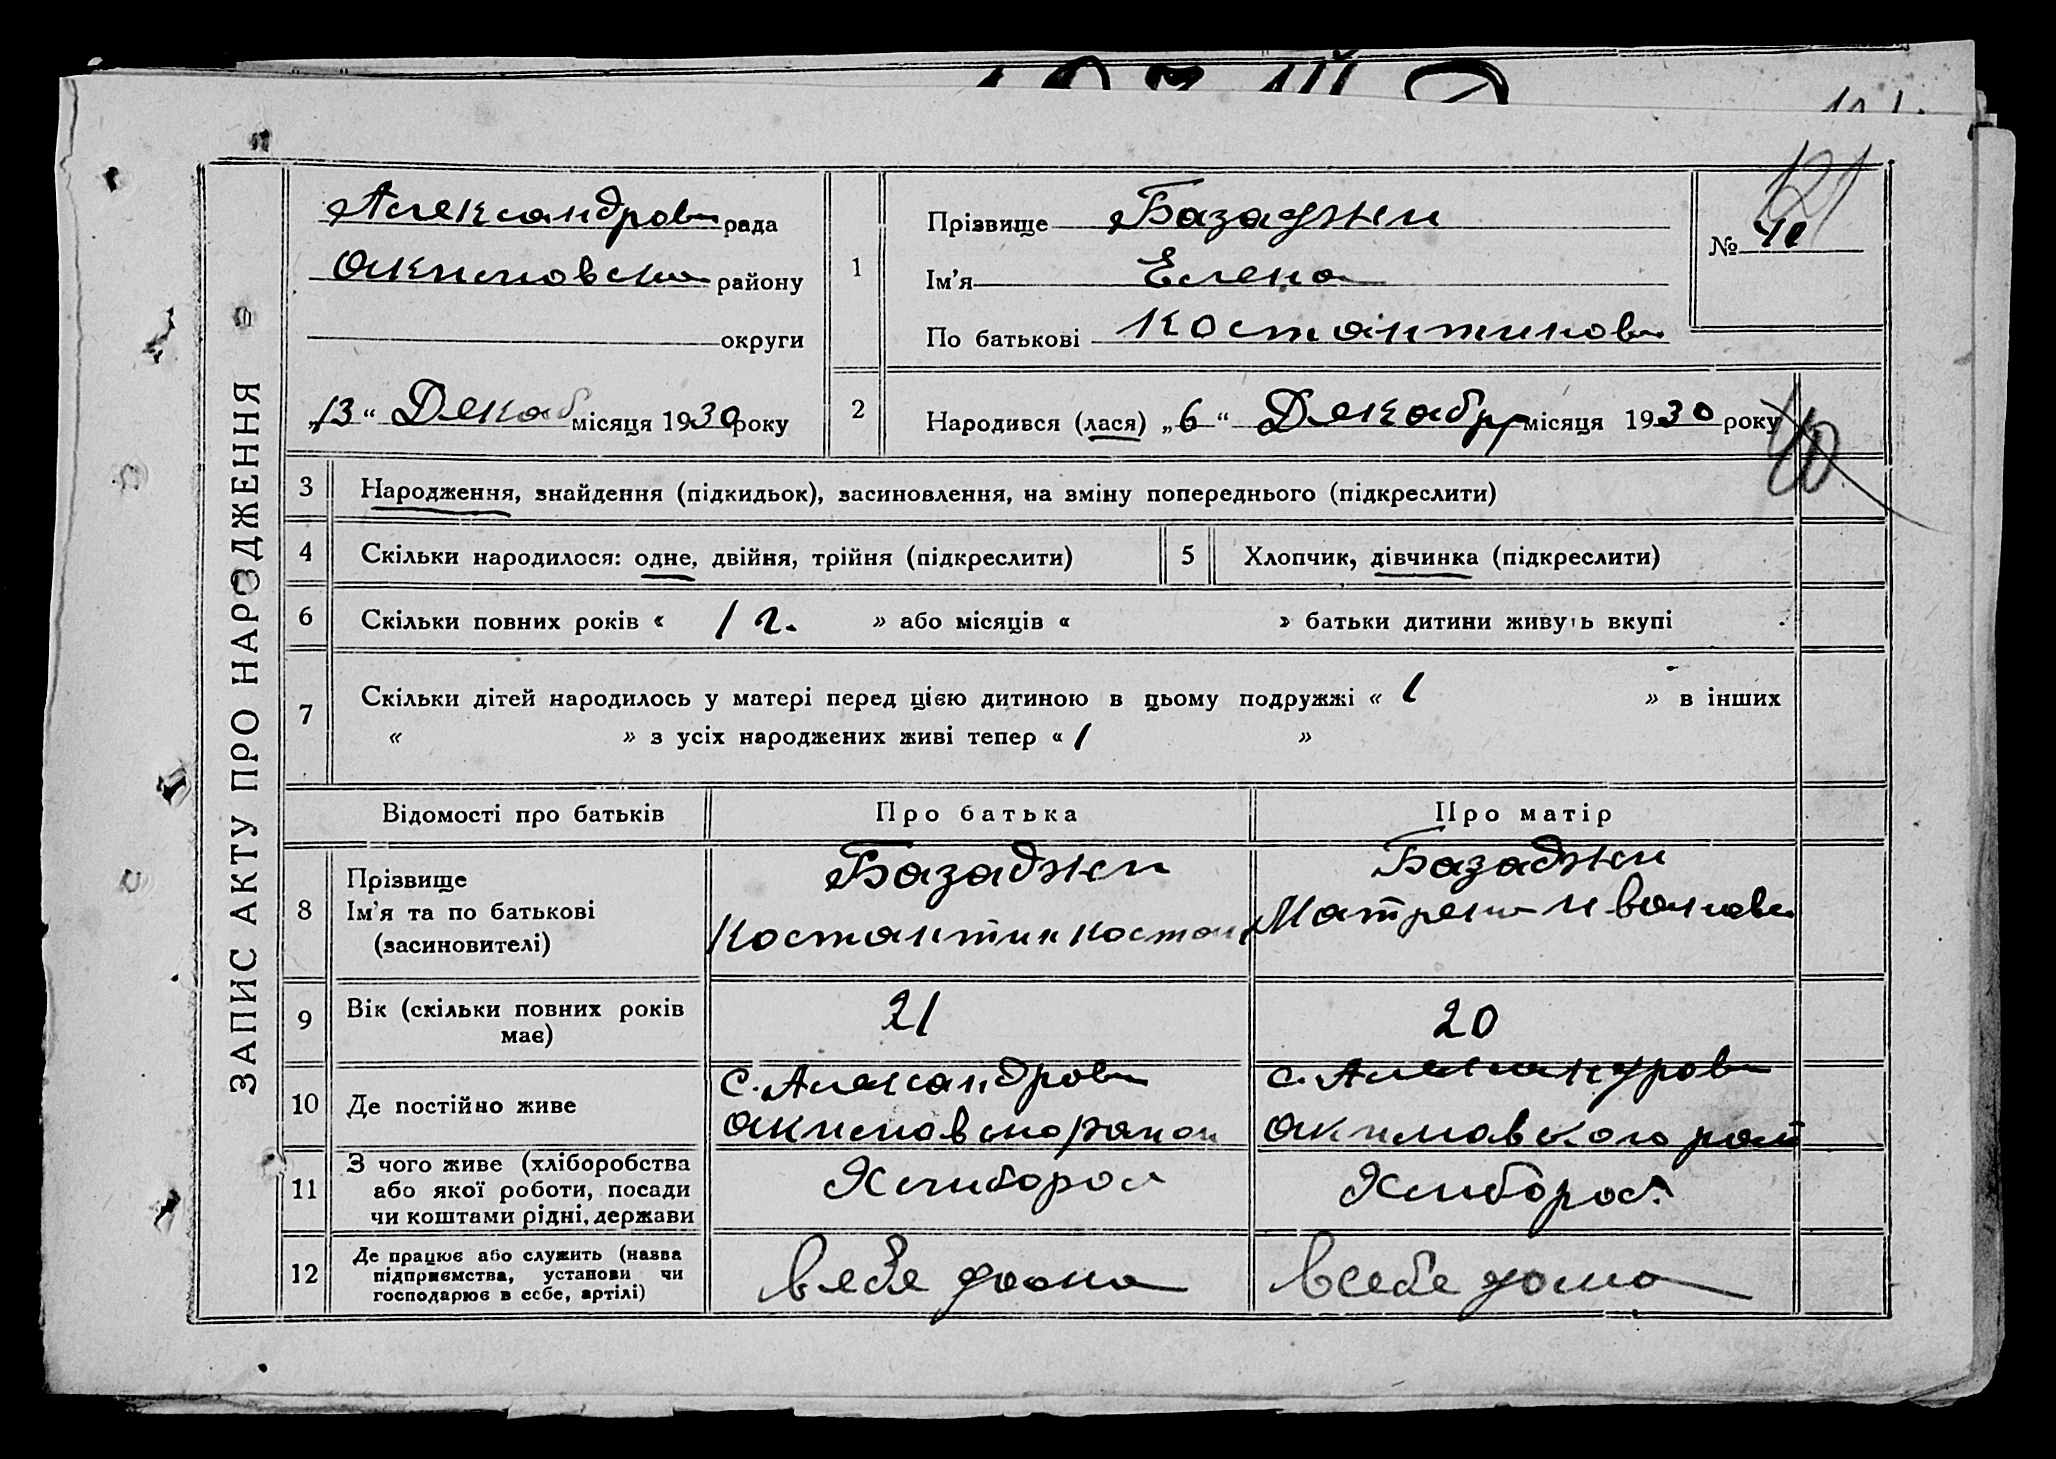 ЗАПИС АКТУ ПРО НАРОДЖЕННЯ
Александров рада
Акимовско району
округи
„13“ Декаб місяця 1930 року
1
Прізвище Базаджи
Ім'я Елена
По батькові Костантинов
121
№ 40
2
Народився (лася) „6“ Декабря місяця 1930 року
40
3 Народження, знайдення (підкидьок), засиновлення, на зміну попереднього (підкреслити)
4 Скільки народилося: одне, двійня, трійня (підкреслити)
5 Хлопчик, дівчинка (підкреслити)
6 Скільки повних років « 1 г. » або місяців « » батьки дитини живуть вкупі
7 Скільки дітей народилось у матері перед цією дитиною в цьому подружжі « 1 » в інших
« » з усіх народжених живі тепер « 1 »
Відомості про батьків
Про батька
Про матір
8
Прізвище
Ім'я та по батькові
(засиновителі)
Базаджи
Костантин Костан
Базаджи
Матрена Ивановн
9
Вік (скільки повних років
має)
21
20
10 Де постійно живе
с. Александровк
Акимовского район
с. Александровк
Акимовского рай
11
З чого живе (хліборобства
або якої роботи, посади
чи коштами рідні, держави
Хлибороб
Хлибороб
12
Де працює або служить (назва
підприємства, установи чи
господарює в себе, артілі)
в себе дома
в себе дома